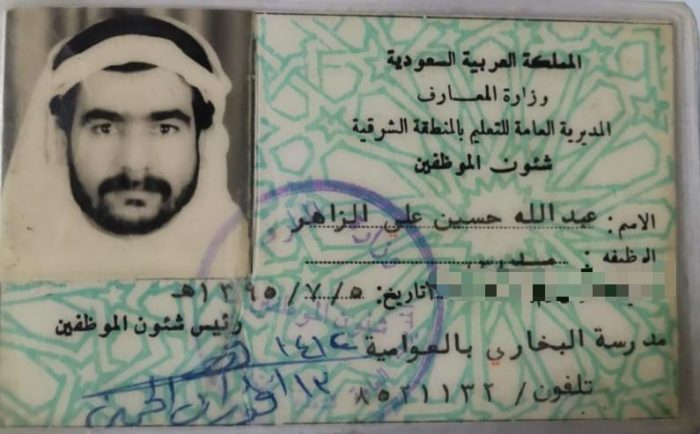 المملكة العربية السعودية
وزارة المعارف
المديرية العامة للتعليم بالمنطقة الشرقية
شئون الموظفين
الاسم: عبدالله حسين علي الزاهر
الوظيفه:
تاريخ: ١٣٩٥/٧/٥هـ
رئيس شئون الموظفين
مدرسة البخاري بالعوامية
تلفون/ ٨٥٢١١٣٢